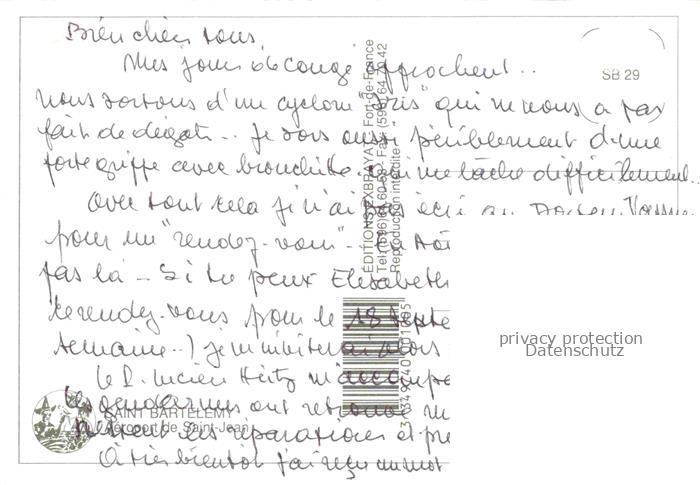 Bien chers tous,
Mes jours de congé approchent...
SB 29
nous sortons d'un cyclone "Iris" qui ne nous a pas
fait de dégats.. Je sors aussi péniblement d'une
forte grippe avec bronchite qui me lâche difficilement..
Avec tout cela je n'ai pas écrit au Docteur
pour un "rendez-vous" - En Août
pas là - Si tu peux Elisabeth
le rendez-vous pour le 18 Septe
semaine..) je m'inviterai alors
le P. Lucien Hertz m'accompa
Les gendarmes ont retrouvé m
les réparations et pr
A très bientôt j'ai reçu un mot
ÉDITIONS EXBRAYAT - Fort-de-France
Reproduction interdite
SAINT BARTELEMY
Aéroport de Saint-Jean
privacy protection
Datenschutz